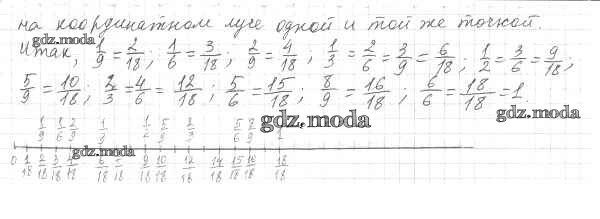 на координатном луче одной и той же точкой.
Итак, 1/9 = 2/18; 1/6 = 3/18; 2/9 = 4/18; 1/3 = 2/6 = 3/9 = 6/18; 1/2 = 3/6 = 9/18;
5/9 = 10/18; 2/3 = 4/6 = 12/18; 5/6 = 15/18; 8/9 = 16/18; 6/6 = 18/18 = 1.
1/9 1/6 2/9 1/3 1/2 5/9 5/6 8/9
0 1/18 2/18 3/18 4/18 6/18 9/18 10/18 12/18 14/18 15/18 16/18 18/18
gdz.moda
gdz.moda
gdz.moda
gdz.moda